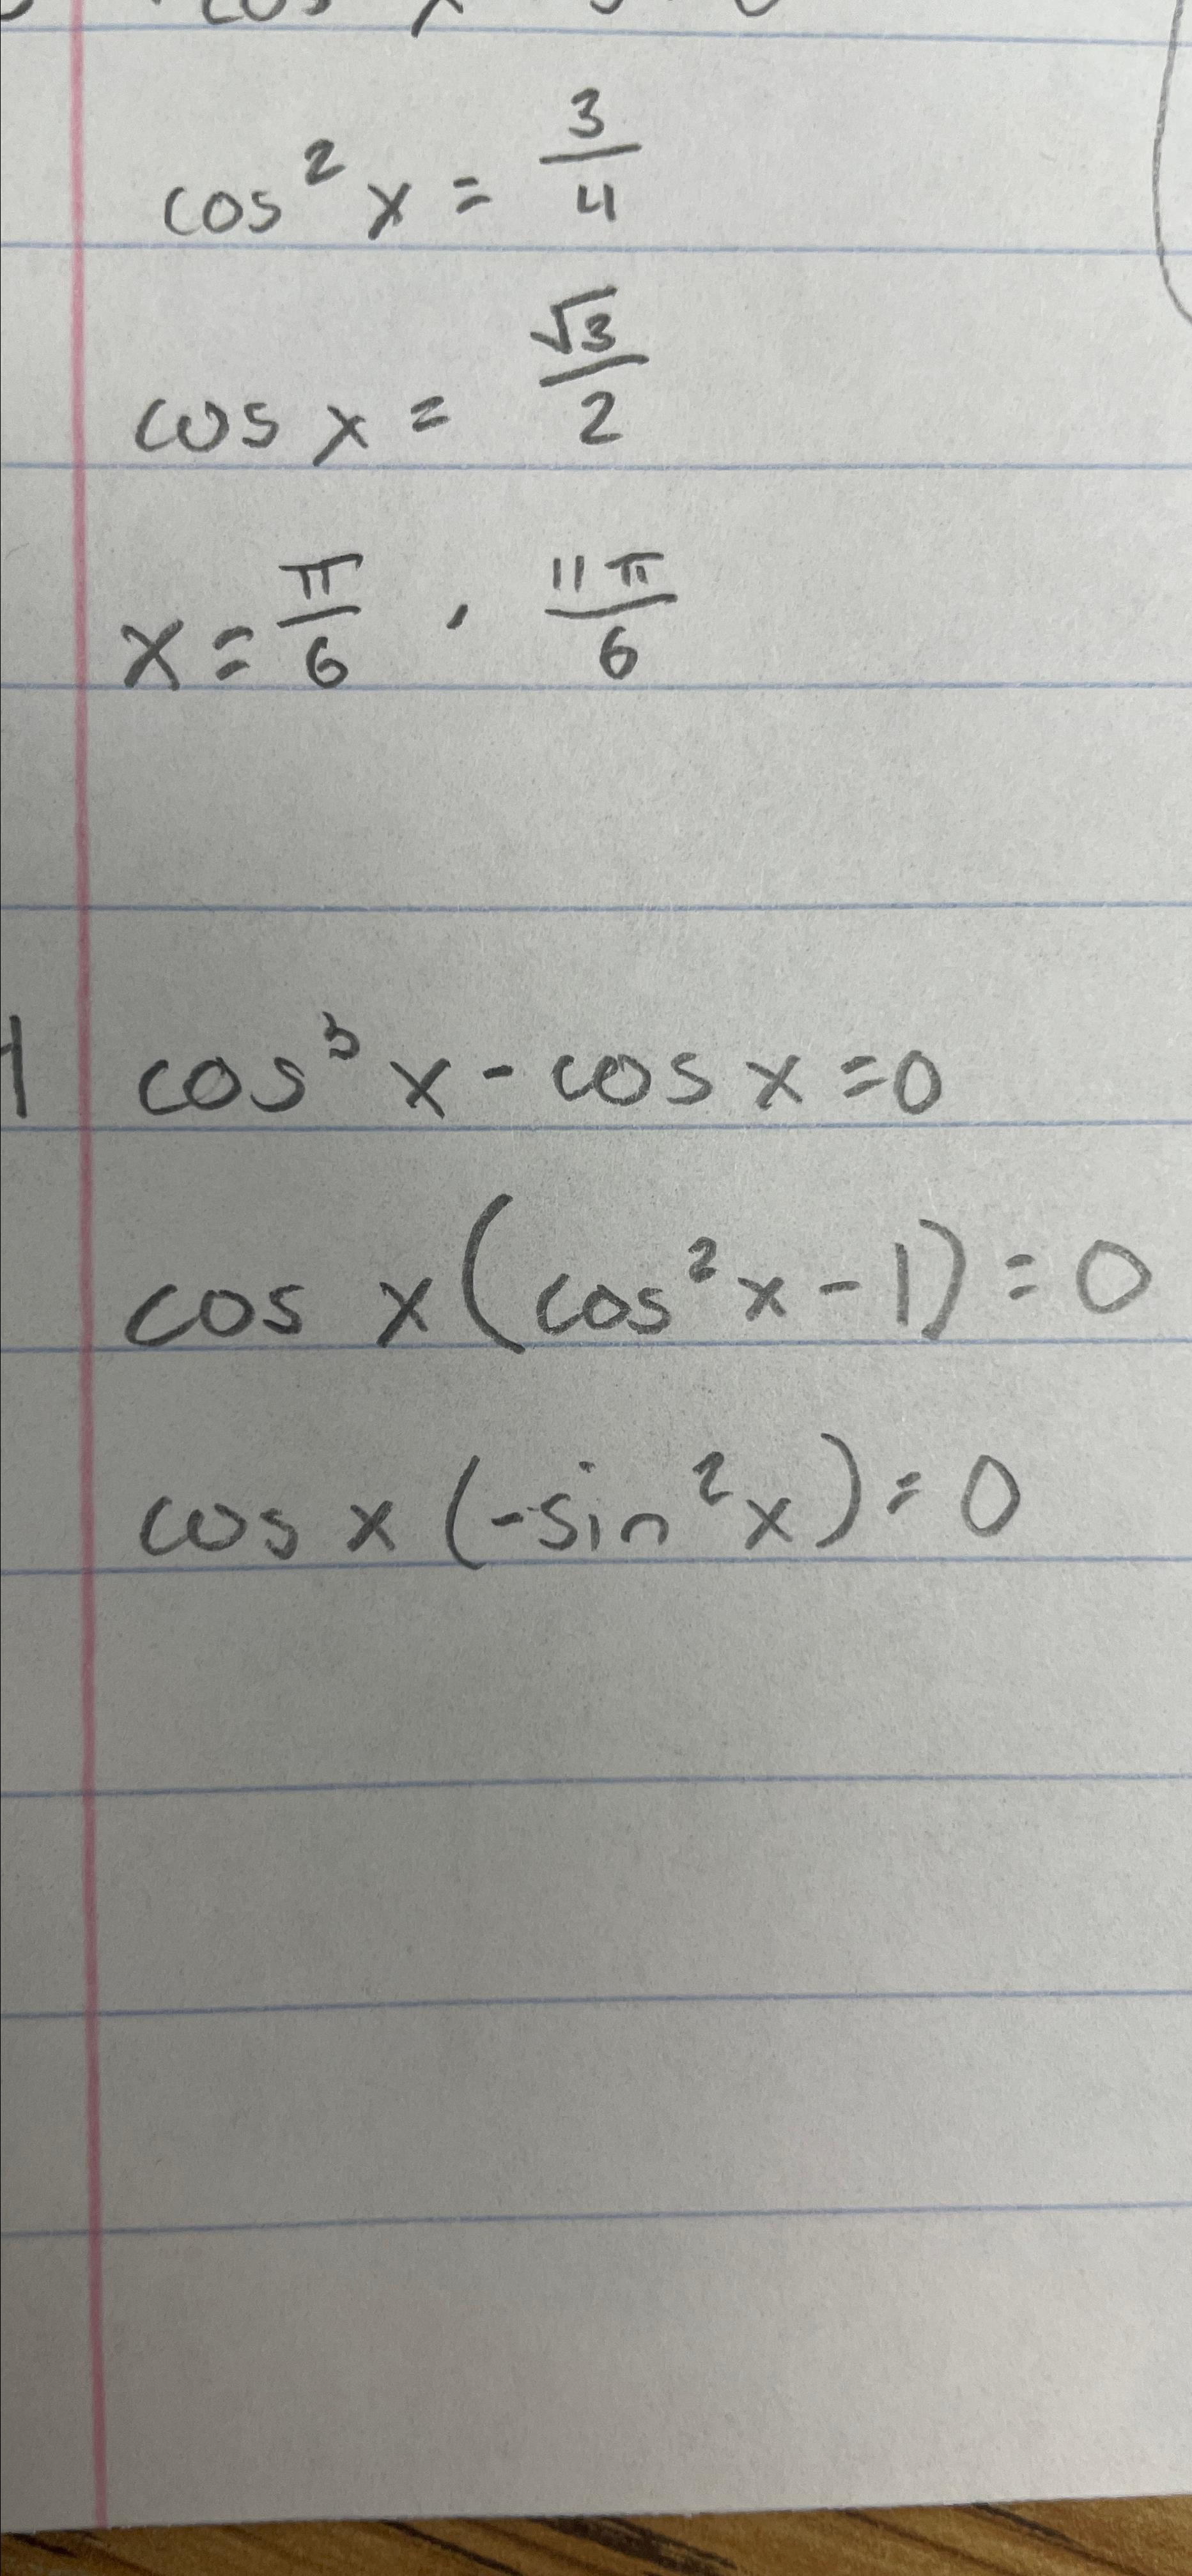 cos² x = 3/4
cos x = √3/2
x = π/6 , 11π/6
cos³ x - cos x = 0
cos x (cos² x - 1) = 0
cos x (-sin² x) = 0